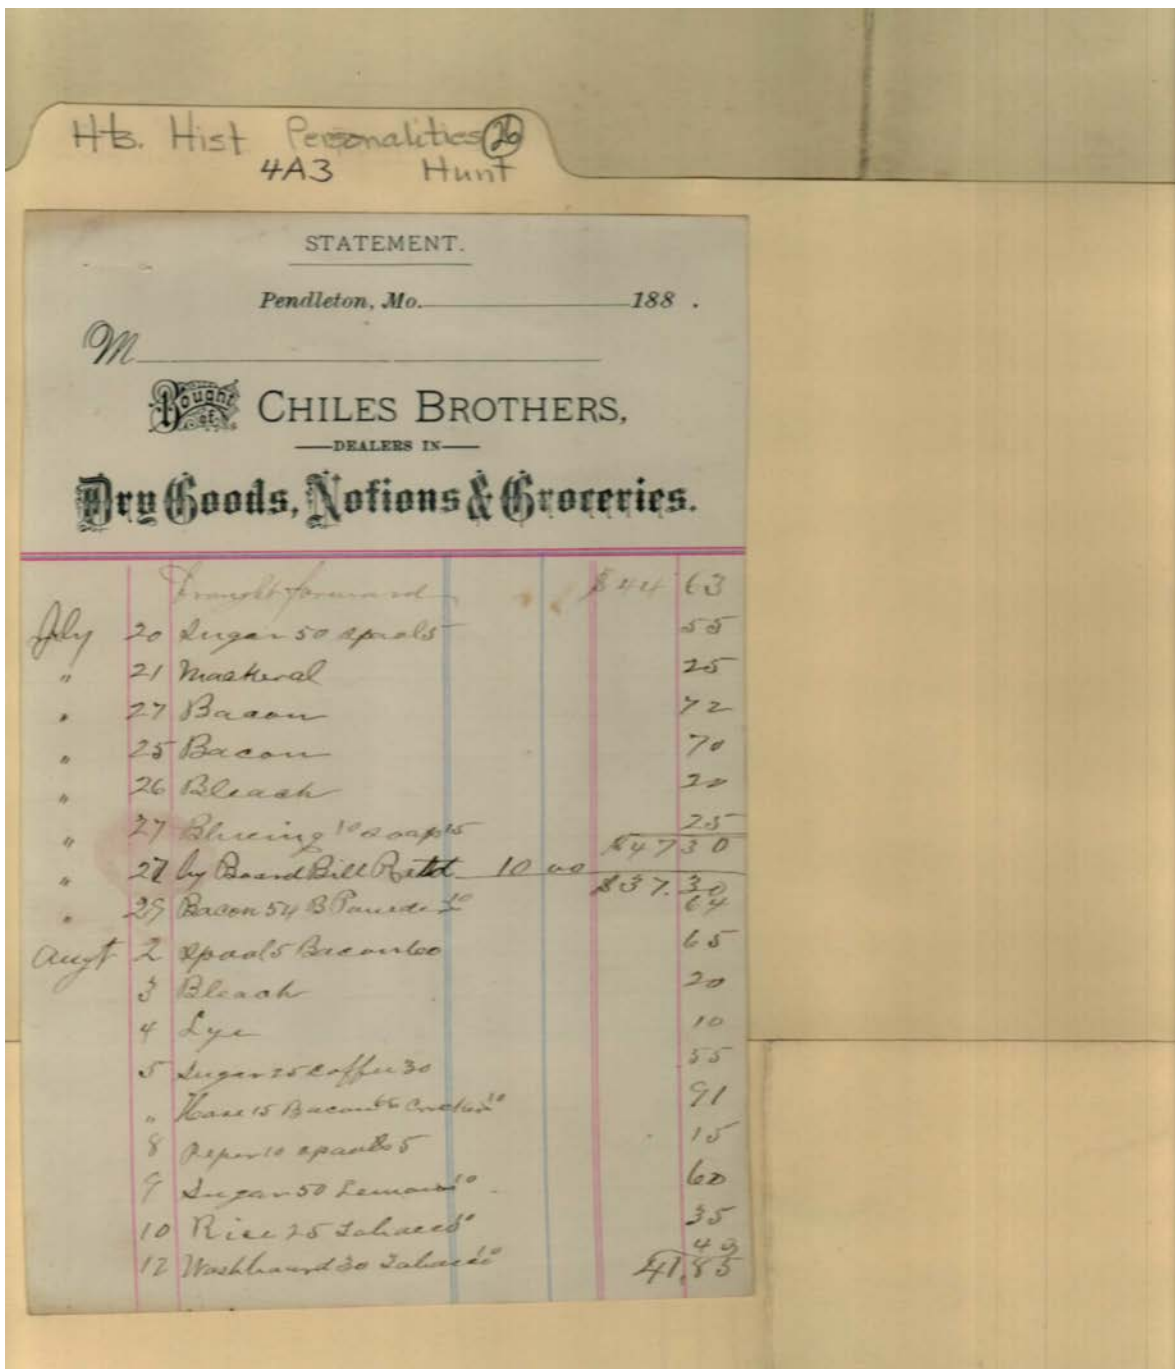 Hts. Hist Personalities 26
4A3 Hunt
STATEMENT.
Pendleton, Mo. 188 .
M
Bought of CHILES BROTHERS,
DEALERS IN
Dry Goods, Notions & Groceries.
Brought forward $44 63
July 20 Sugar 50 spool 5 55
" 21 Mackeral 25
" 27 Bacon 72
" 25 Bacon 70
" 26 Bleach 20
" 27 Blueing 10 soap 15 25
$47 30
" 27 by Board Bill 10 00
$37.30
" 29 Bacon 54 B 10 64
Augt 2 spool 5 Bacon 60 65
3 Bleach 20
4 Lye 10
5 Sugar 25 Coffee 30 55
" Hose 15 Bacon 66 10 91
8 Peper 10 spool 5 15
9 Sugar 50 Lemons 10 60
10 Rice 25 Tobacco 10 35
12 Washboard 30 Tobacco 10 40
41,85